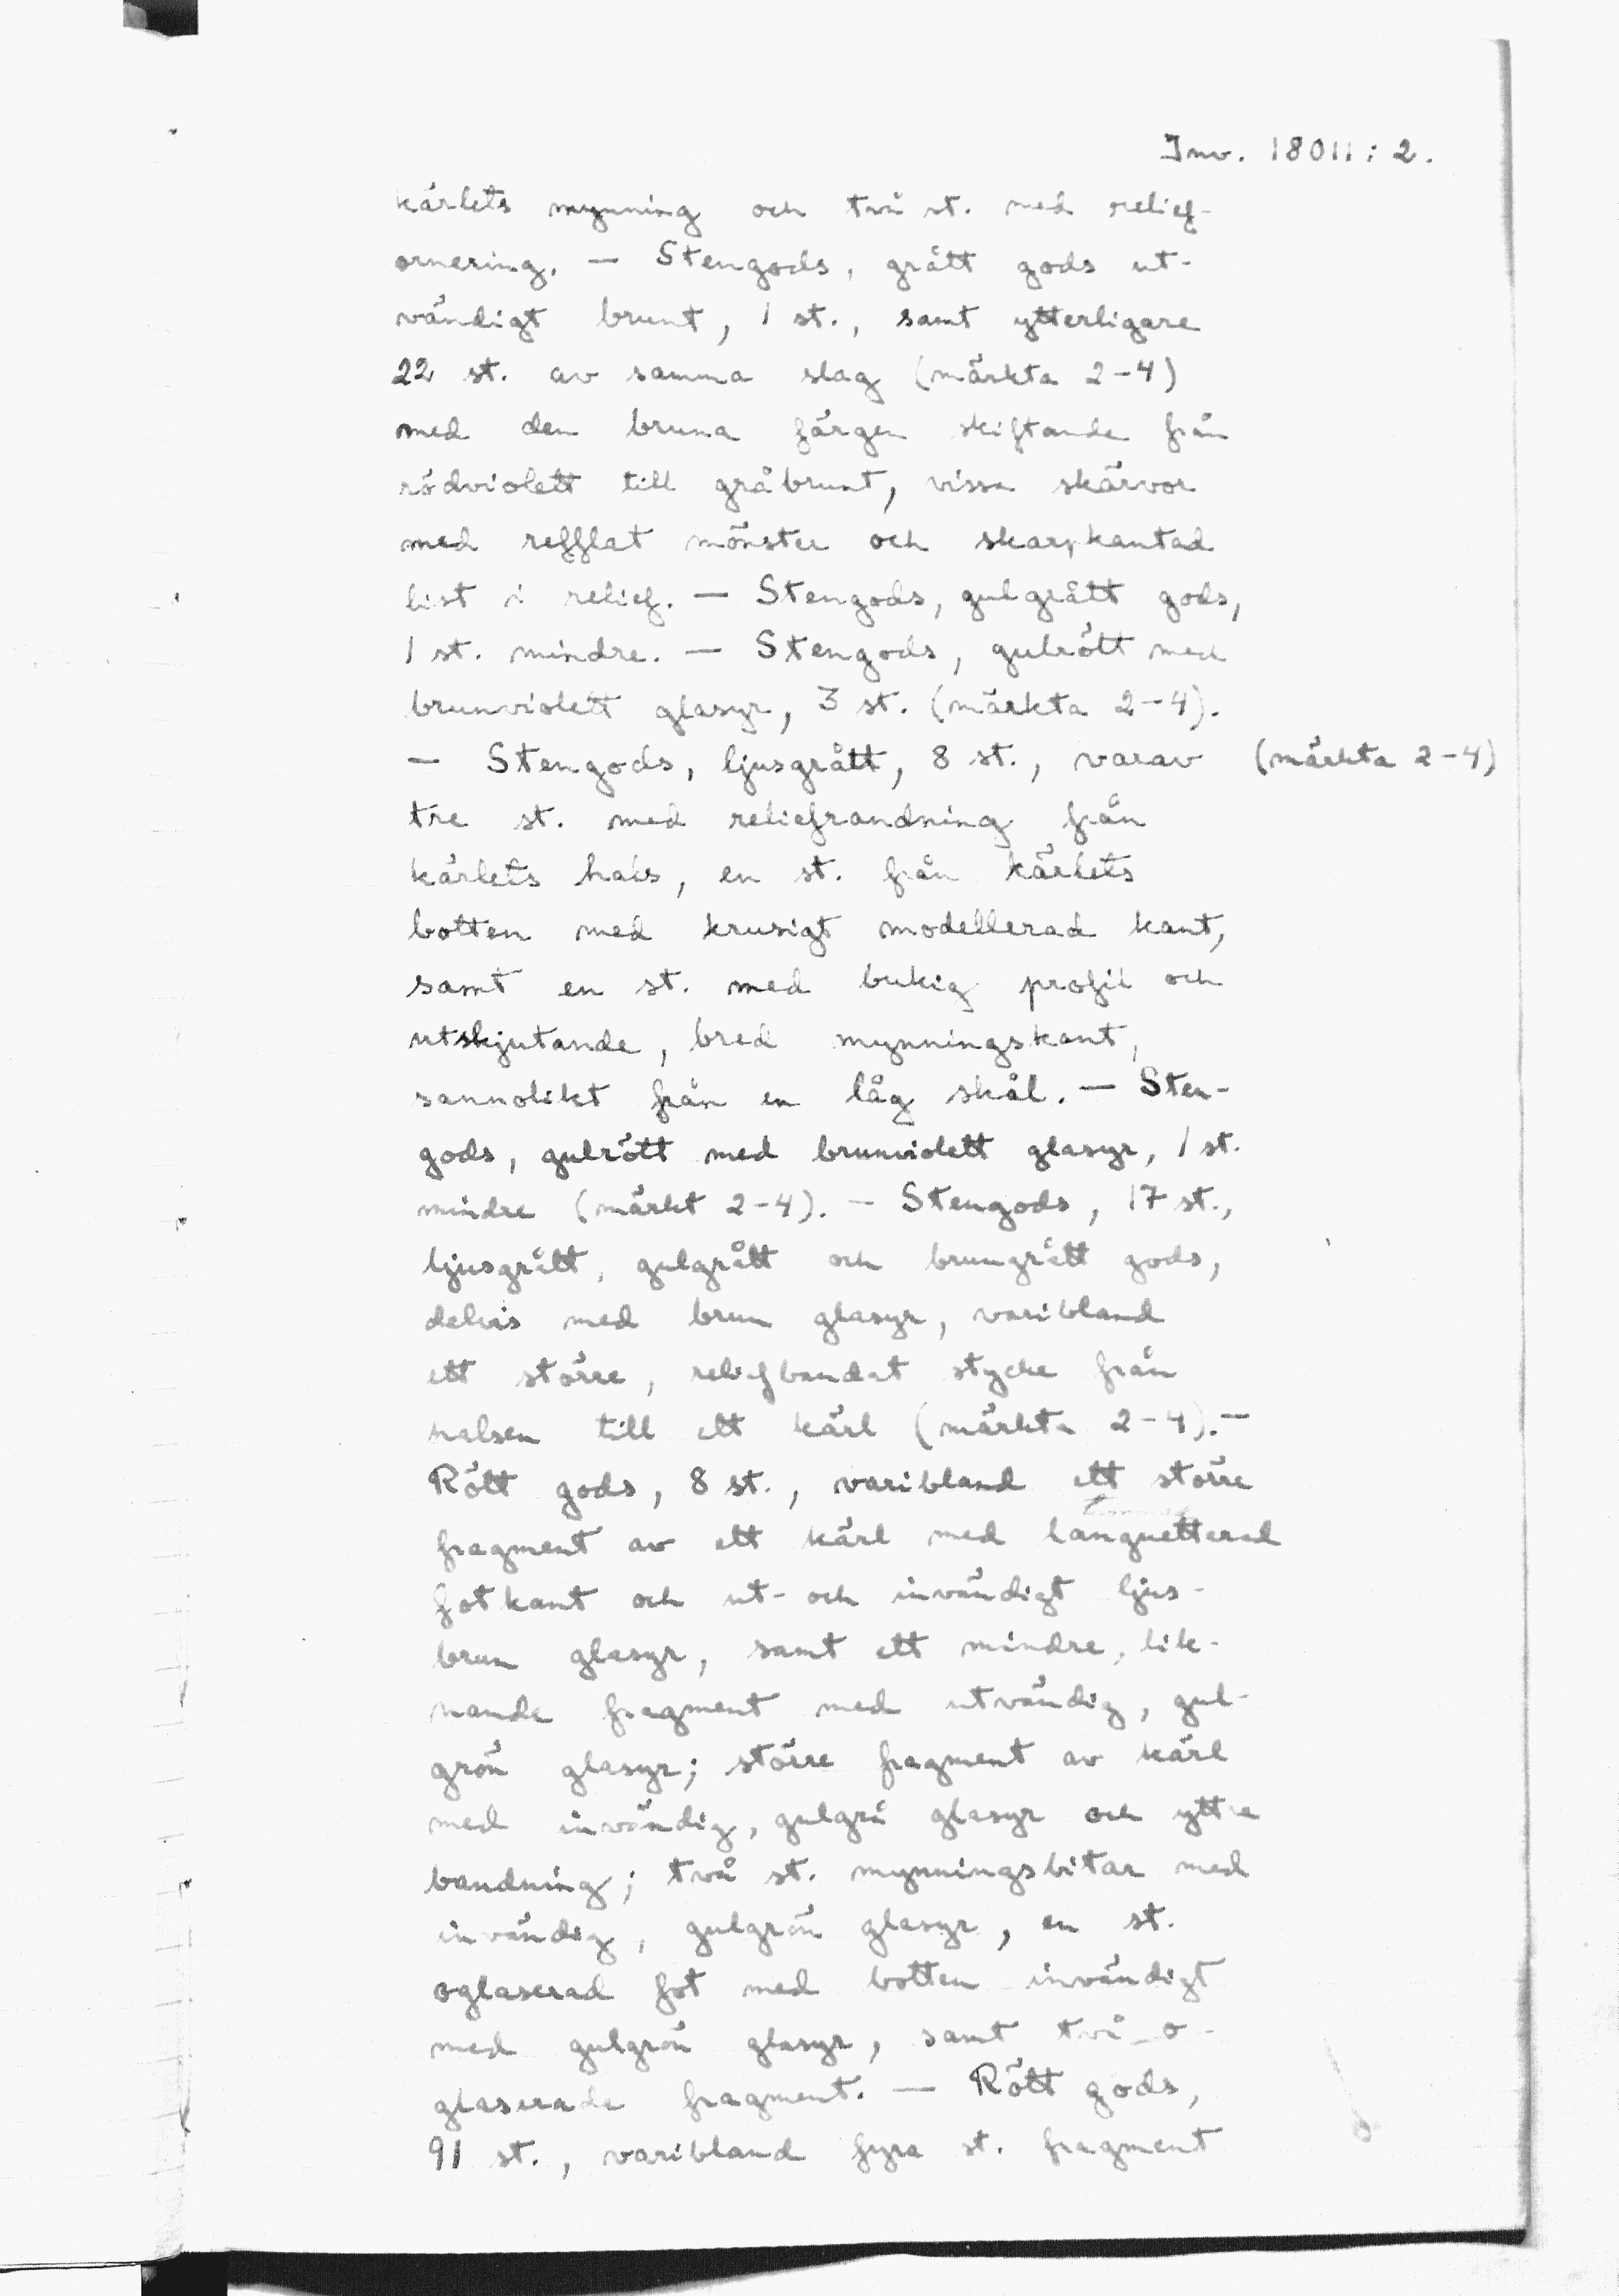 Inv. 18011:2.
kärlets mynning och två st. med relief-
ornering. — Stengods, grått gods ut-
vändigt brunt, 1 st., samt ytterligare
22 st. av samma slag (märkta 2-4)
med den bruna färgen skiftande från
rödviolett till gråbrunt, vissa skärvor
med refflat mönster och skarpkantad
list i relief. — Stengods, gulgrått gods,
1 st. mindre. — Stengods, gulrött med
brunviolett glasyr, 3 st. (märkta 2-4).
— Stengods, ljusgrått, 8 st., varav (märkta 2-4)
tre st. med reliefrandning från
kärlets hals, en st. från kärlets
botten med krusigt modellerad kant,
samt en st. med bukig profil och
utskjutande, bred mynningskant,
sannolikt från en låg skål. — Sten-
gods, gulrött med brunviolett glasyr, 1 st.
mindre (märkt 2-4). — Stengods, 17 st.,
ljusgrått, gulgrått och brungrått gods,
delvis med brun glasyr, varibland
ett större, reliefbandat stycke från
halsen till ett kärl (märkta 2-4). —
Rött gods, 8 st., varibland ett större
fragment av ett kärl med languetterad
fotkant och ut- och invändigt ljus-
brun glasyr, samt ett mindre, lik-
nande fragment med utvändig, gul-
grön glasyr; större fragment av kärl
med invändig, gulgrå glasyr och yttre
bandning; två st. mynningsbitar med
invändig, gulgrön glasyr, en st.
oglaserad fot med botten invändigt
med gulgrön glasyr, samt två o-
glaserade fragment. — Rött gods,
91 st., varibland fyra st. fragment